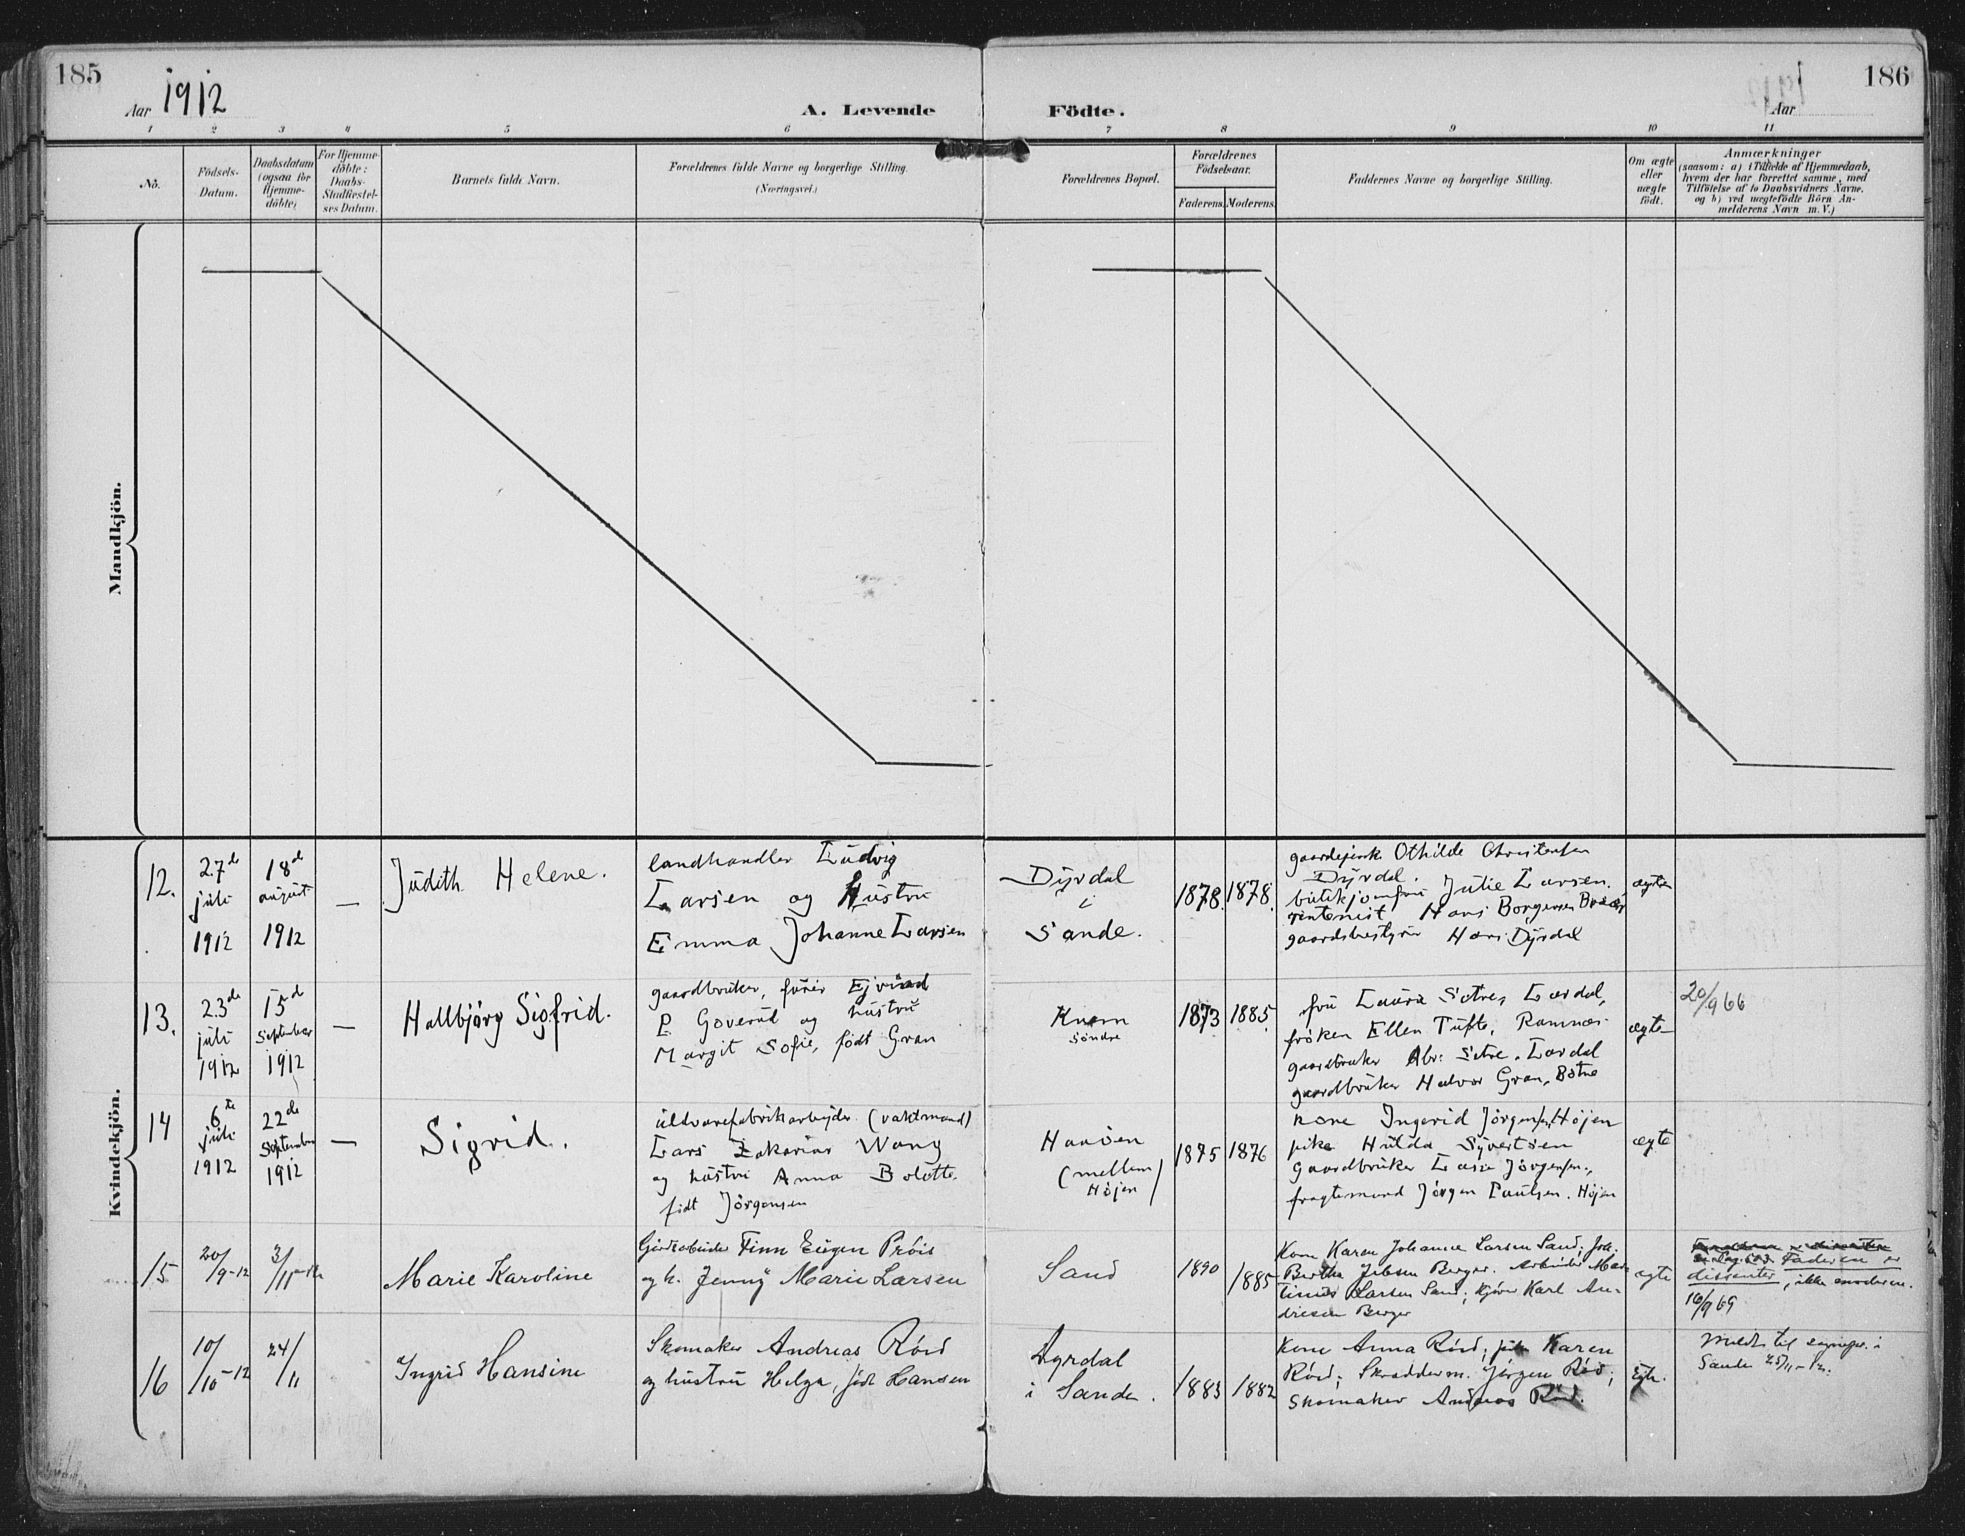 185
Aar 1912
A. Levende
Födte.
Aar
186
1 2 3 4 5 6 7 8 9 10 11
No.
Födsels-Datum.
Daabsdatum (ogsaa for Hjemme-döbte)
For Hjemme-döbte: Daabs-Stadfæstel-ses Datum.
Barnets fulde Navn.
Forældrenes fulde Navne og borgerlige Stilling.
(Næringsvei.)
Forældrenes Bopæl.
Forældrenes Födselsaar.
Faderens. Moderens.
Faddernes Navne og borgerlige Stilling.
Om ægte eller uægte födt.
Anmærkninger
(saasom: a) i Tilfælde af Hjemmedaab,
hvem der har forrettet samme, med
Tilföielse af to Daabsvidners Navne,
og b) ved uægtefödte Börn An-
melderens Navn m. V.)
Mandkjön.
Kvindekjön.
12.
27de
juli
1912
18d
august
1912
—
Judith Helene.
landhandler Ludvig
Larsen og Hustru
Emma Johanne Larsen
Dyrdal
i
Sande.
1878.
1878.
Othilde Christensen
Dyrdal.
butikjomfru Julie Larsen.
rentenist Hans Borgersen
gaardsbestyrer Hans Dyrdal
ægte
13.
23de
juli
1912
15d
September
1912
—
Hallbjørg Sigfrid.
gaardbruker, furér Ejvind
P. Goverud og hustru
Margit Sofie, født Gran
Knem
Søndre
1873
1885.
fru Laura Sætre, Lardal,
frøken Ellen Tufte, Ramnæs
gaardbruker Abr. Sætre. Lardal
gaardbruker Halvor Gran, Botne
ægte
20/9 66
14
6te
juli
1912
22de
September
1912
—
Sigrid.
uldvarefabrikarbejder (vaktmand)
Lars Zakarias Wang
og hustru Anna Bolette,
født Jørgensen
Haasen
(mellem
Højen)
1875
1876
kone Ingerid Jørgensen, Højen
pike Hulda Syvertsen
Gaardbruker Lars Jørgensen,
fragtemand Jørgen Paulsen. Højen
ægte
15
20/9-12
3/11-12
Marie Karoline
Finn Eugen Prøis
og h. Jenny Marie Larsen
Sand
1890
1885
Kone Karen Johanne Larsen Sand;
Bertha Jebsen Berger. Arbeider Mar-
tinus Larsen Sand; Karl An-
dresen Berger
ægte
Faderen er
dissenter, ikke moderen.
16/9 69
16
10/10-12
24/11
Ingrid Hansine
Skomaker Andreas Röed
og hustru Helga, født Hansen
Dyrdal
i Sande.
1883
1882
Kone Anna Röed; pike Karen
Röed; Skrædderm. Jörgen Röed;
Skomaker Andreas Röed.
Egte.
Meldt til sognepr. i
Sande 25/11-12.